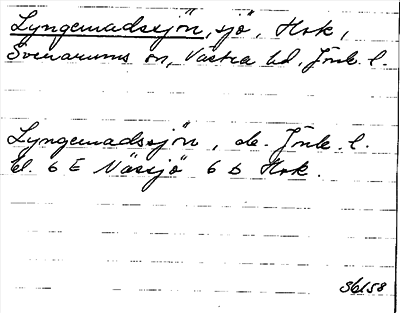 Lyngemadssjön, sjö, Hok,
Svenarums sn, Västra hd, Jönk. l.
Lyngemadssjön, de. Jönk. l.
bl. 6 E Nässjö 6 D Hok.